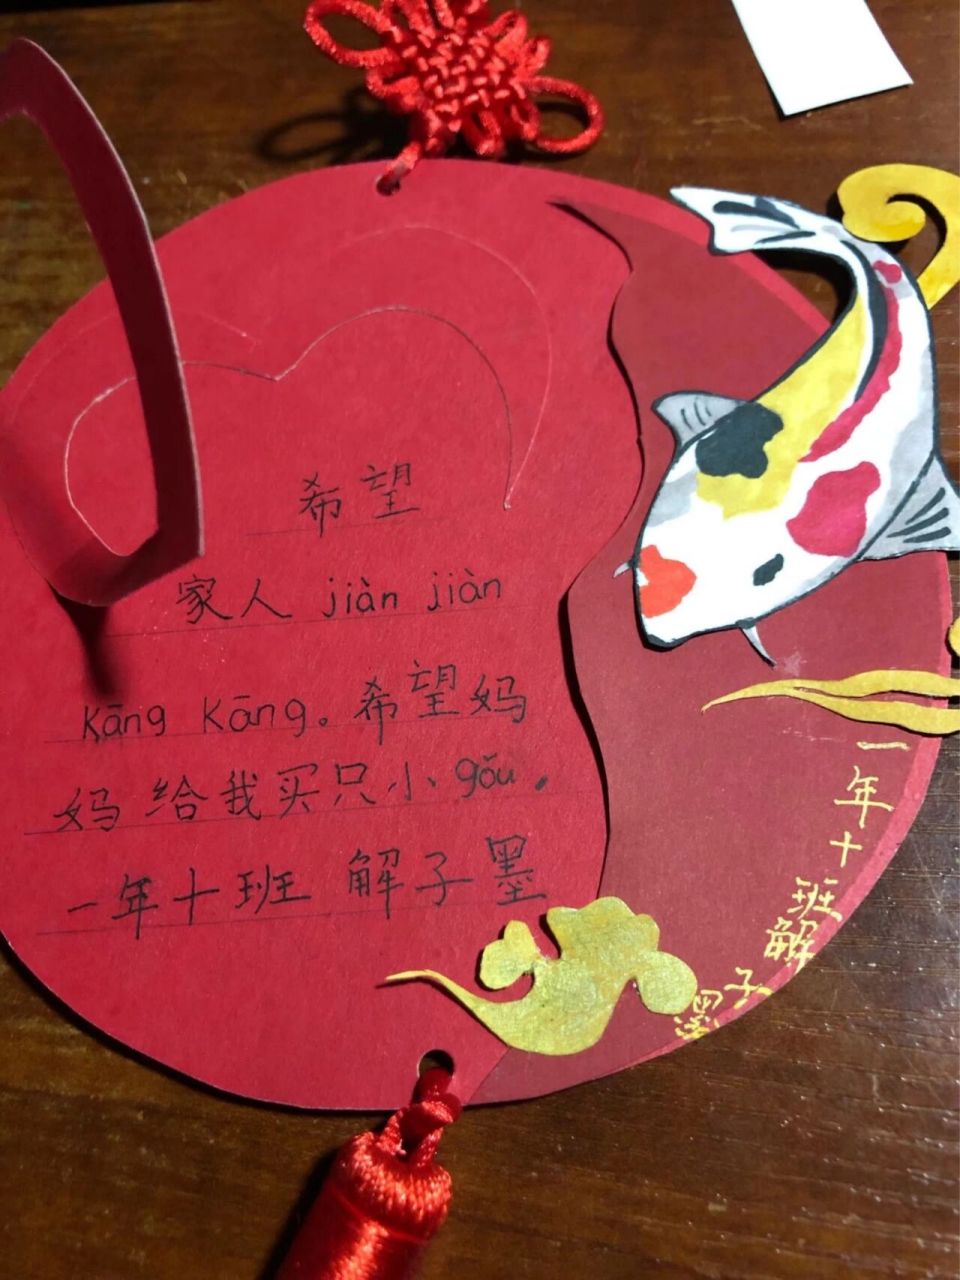 希望
家人 jiàn jiàn
kāng kāng。希望妈
妈给我买只小gǒu。
一年十班 解子墨
一年十班解子墨